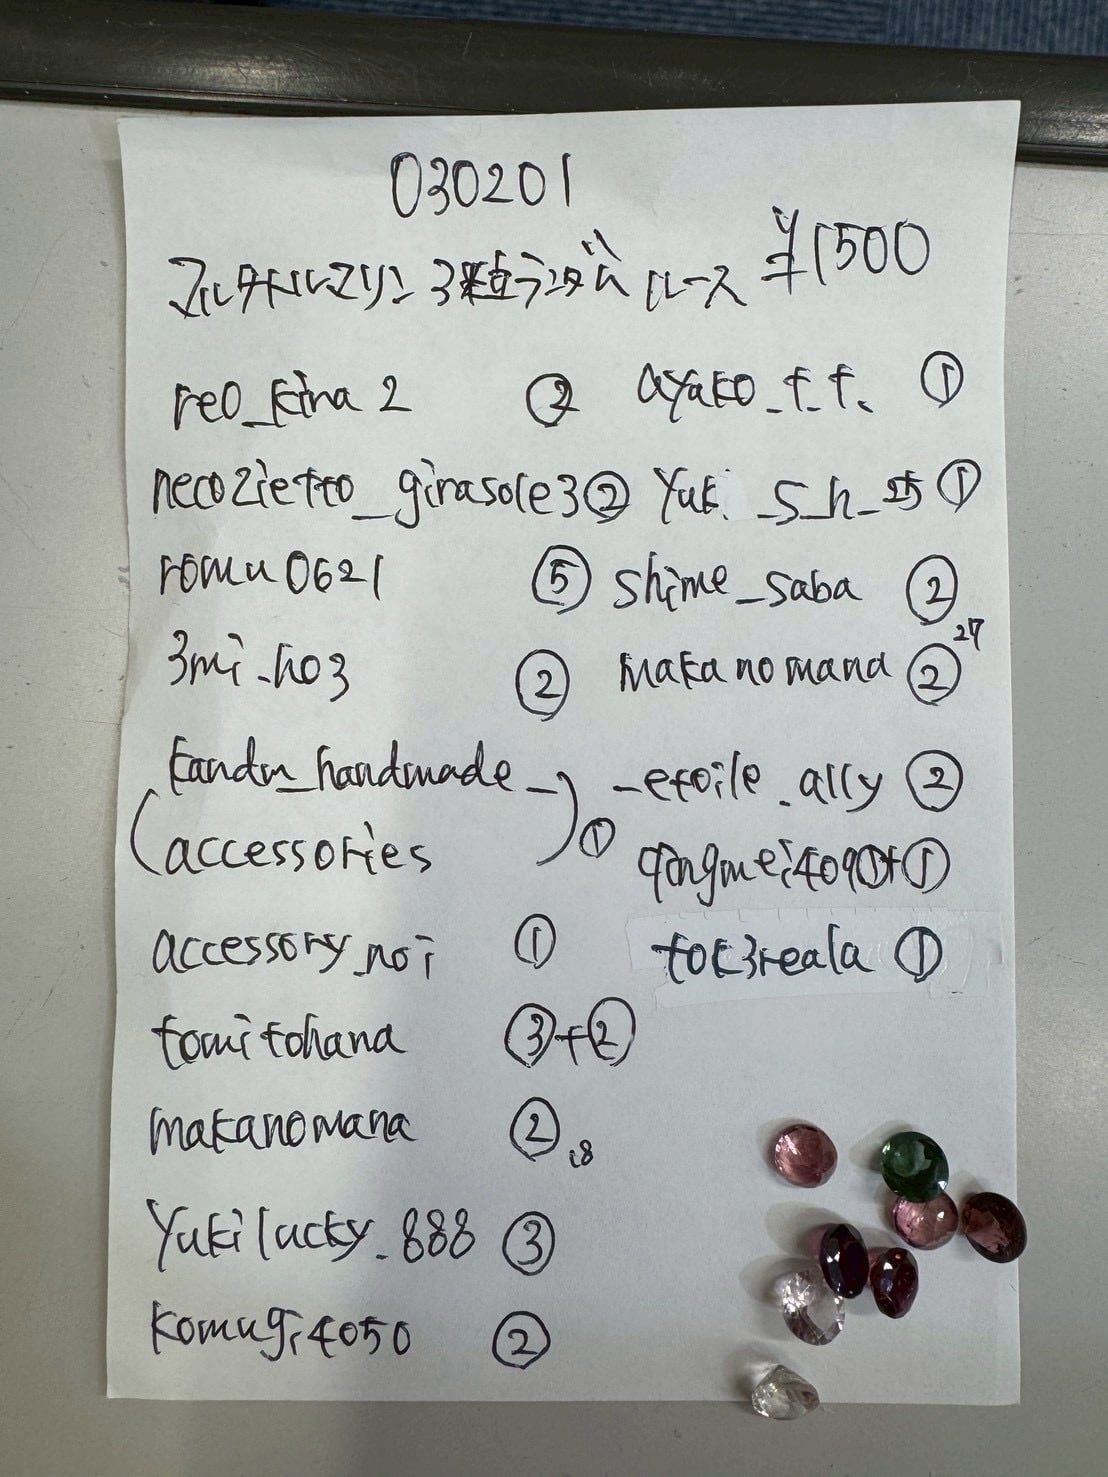 030201
マルチトルマリン 3粒ランダム ルース ¥1500
reo_kina2 ②
necozietto_girasole3 ②
romu0621 ⑤
3mi_ho3 ②
(kandm_handmade_
accessories) ①
accessory_noi ①
tomitohana ③+②
makanomana ② 18
yukilucky_888 ③
komugi4050 ②
ayako_f.f. ①
yuki_s_h_25 ①
shime_saba ②
makanomana ② 27
_etoile_ally ②
①+①
tok3reala ①